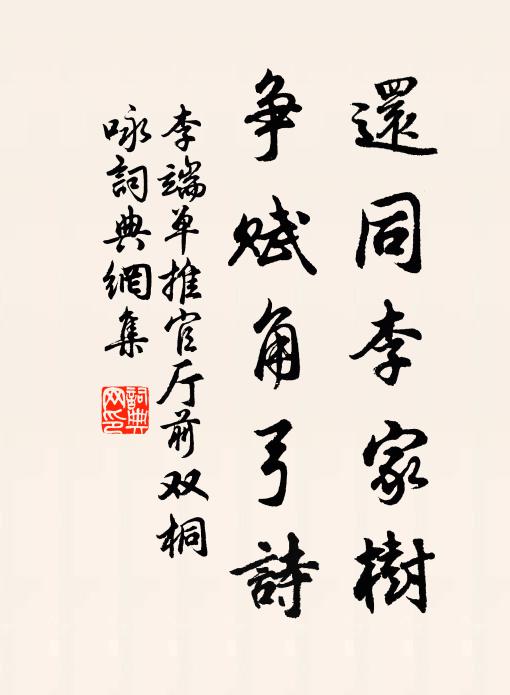 還同李家樹
争賦角弓詩
李端单推官厅前双桐
咏詞典網集
詞典网印